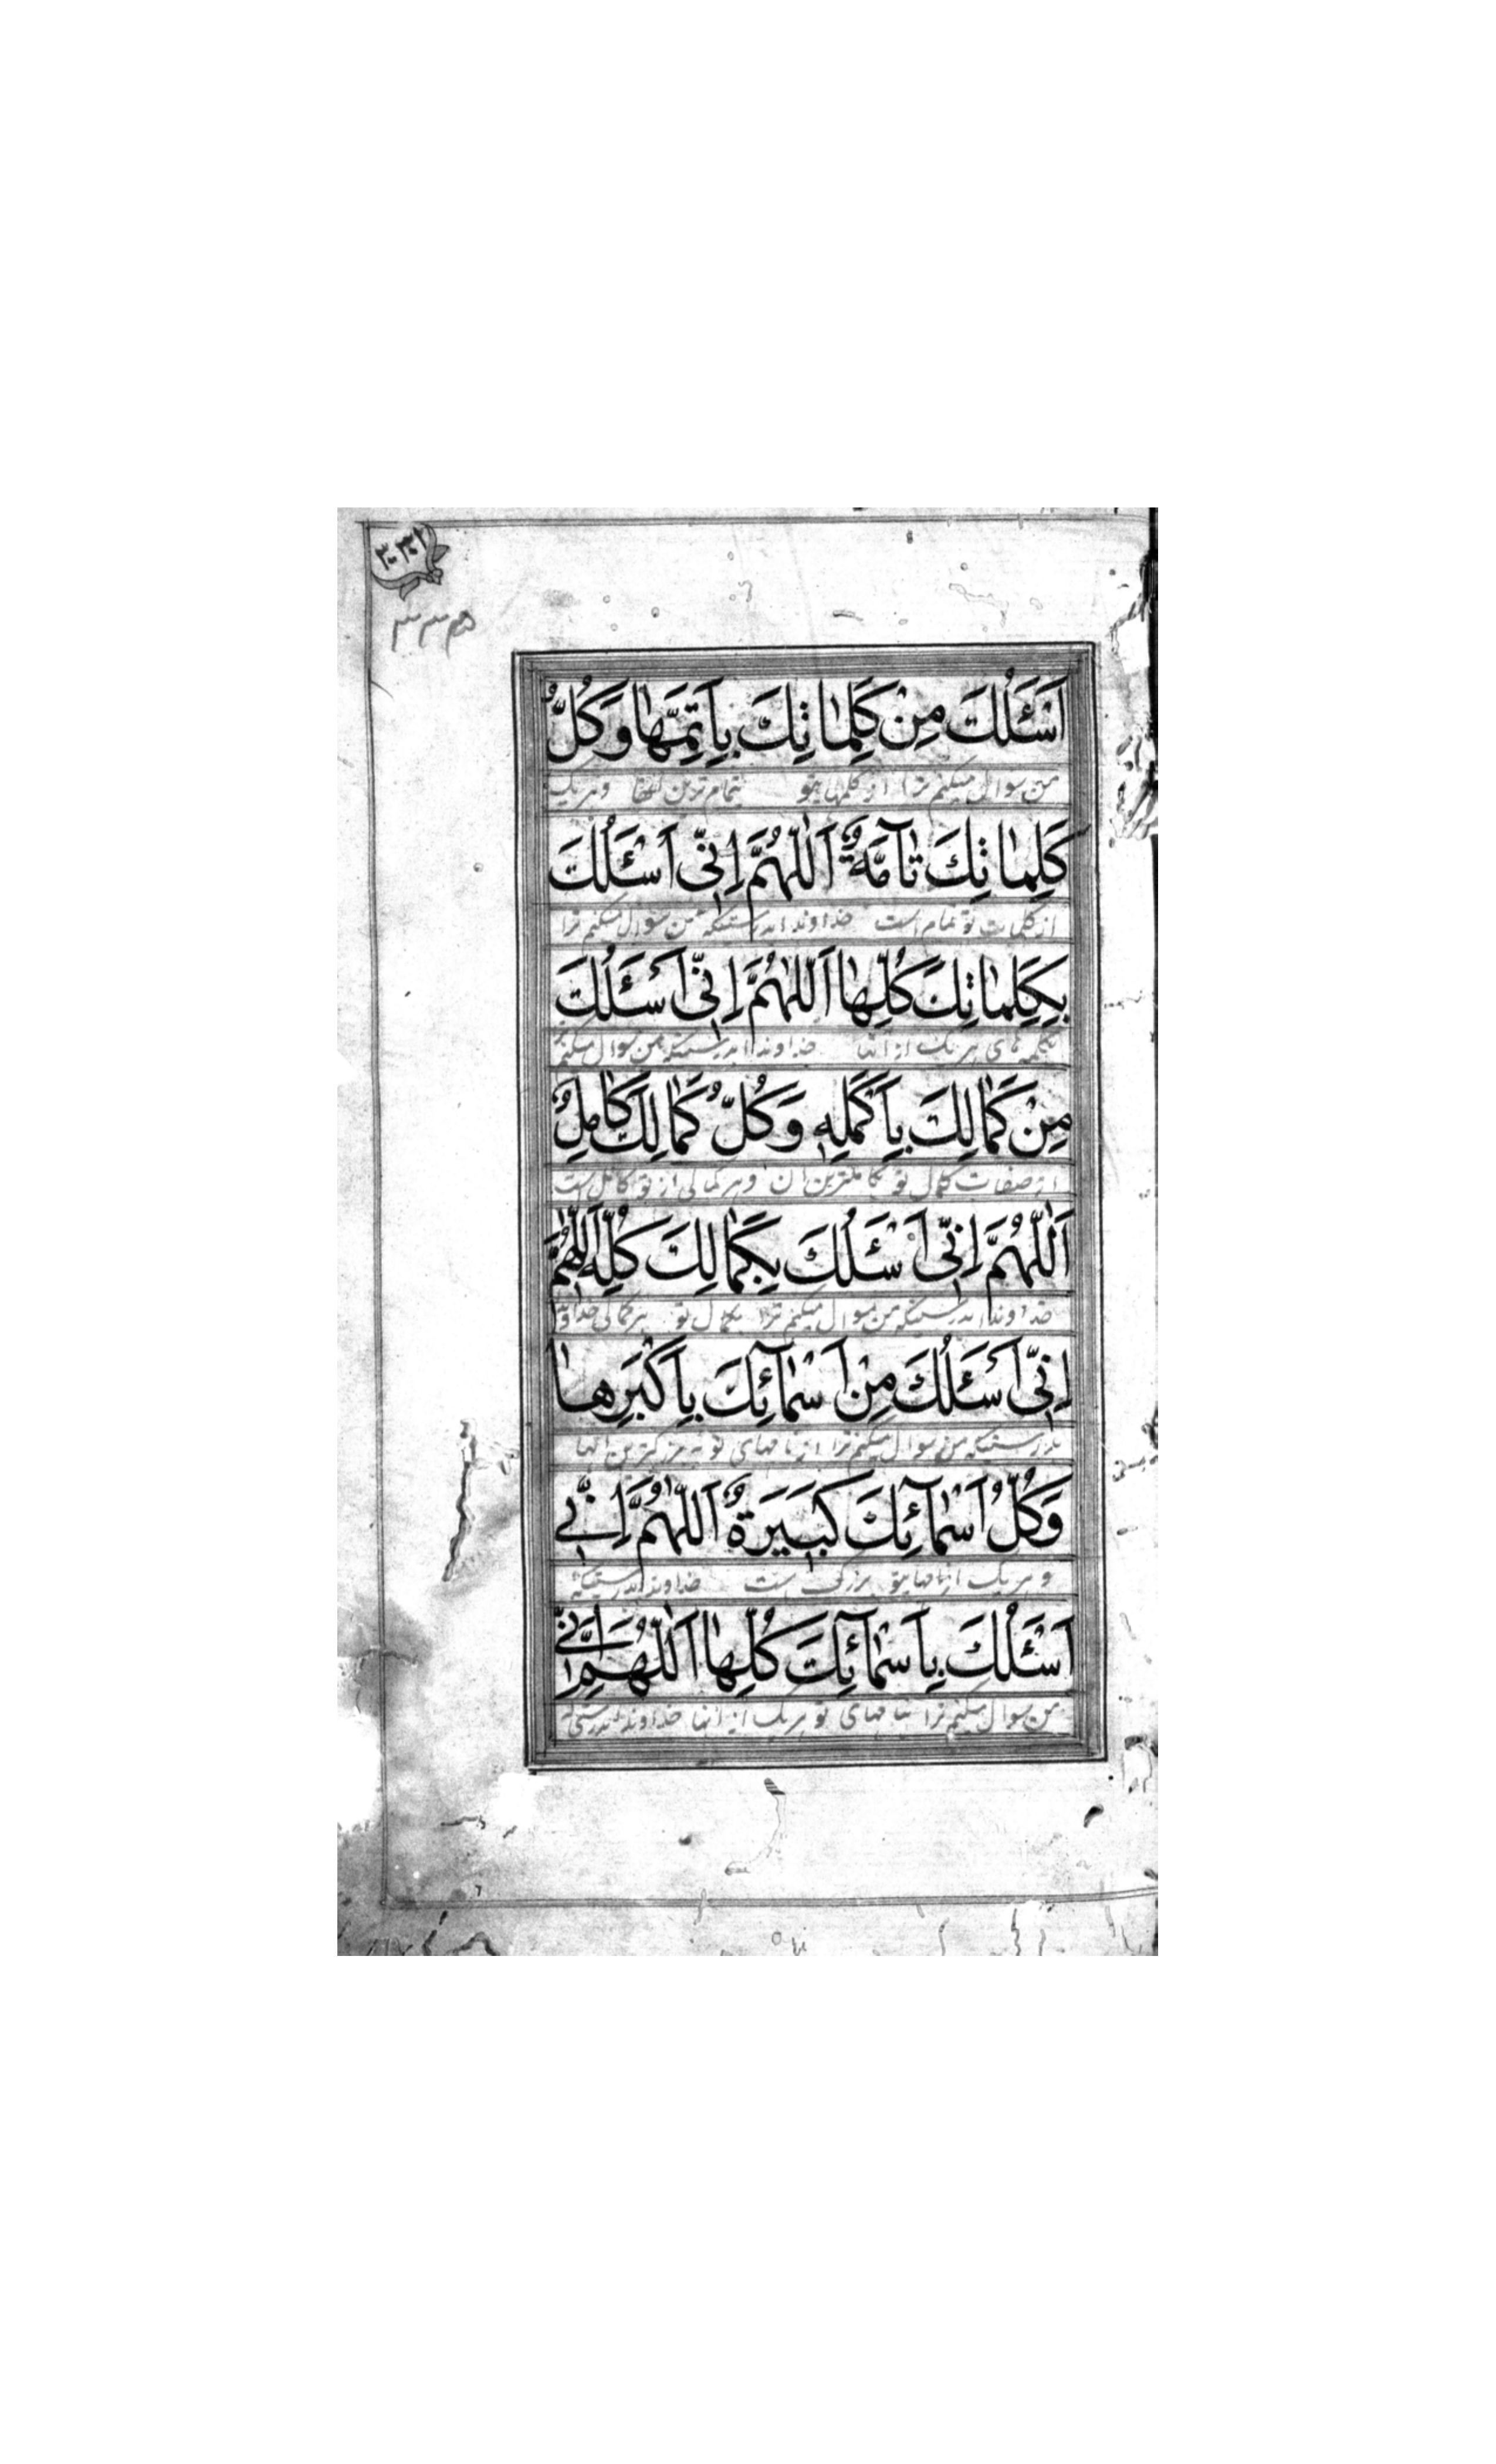 اَسْئَلُكَ مِنْ كَلِمٰاتِكَ بِاَتَمِّهٰا وَكُلُّ
من سوال میکنم ترا از کلمهایتو بتمام ترین وهر یک
كَلِمٰاتِكَ تٰآمَّةٌ اَللّٰهُمَّ اِنّٖى اَسْئَلُكَ
از کلمات تو تمام است خداوندا بدرستیکه من سوال میکنم ترا
بِكَلِمٰاتِكَ كُلِّهٰا اَللّٰهُمَّ اِنّٖى اَسْئَلُكَ
بکلمه های هر یک از آنها خداوندا بدرستیکه من سوال میکنم
مِنْ كَمٰالِكَ بِاَكْمَلِهٖ وَكُلُّ كَمٰالِكَ كٰامِلٌ
از صفات کمال تو کاملترین آن وهر کمالی از تو کامل است
اَللّٰهُمَّ اِنّٖى اَسْئَلُكَ بِكَمٰالِكَ كُلِّهٖ اَللّٰهُمَّ
خداوندا بدرستیکه من سوال میکنم ترا بکمال تو هر کمالی خداوندا
اِنّٖى اَسْئَلُكَ مِنْ اَسْمٰآئِكَ بِاَكْبَرِهٰا
بدرستیکه من سوال میکنم ترا از نامهای تو به بزرکترین آنها
وَكُلُّ اَسْمٰآئِكَ كَبٖيرَةٌ اَللّٰهُمَّ اِنّٖى
و هر یک از نامهایتو بزرک است خداوندا بدرستیکه
اَسْئَلُكَ بِاَسْمٰآئِكَ كُلِّهٰا اَللّٰهُمَّ اِنّٖى
من سوال میکنم ترا بنامهای تو هر یک از آنها خداوندا بدرستیکه